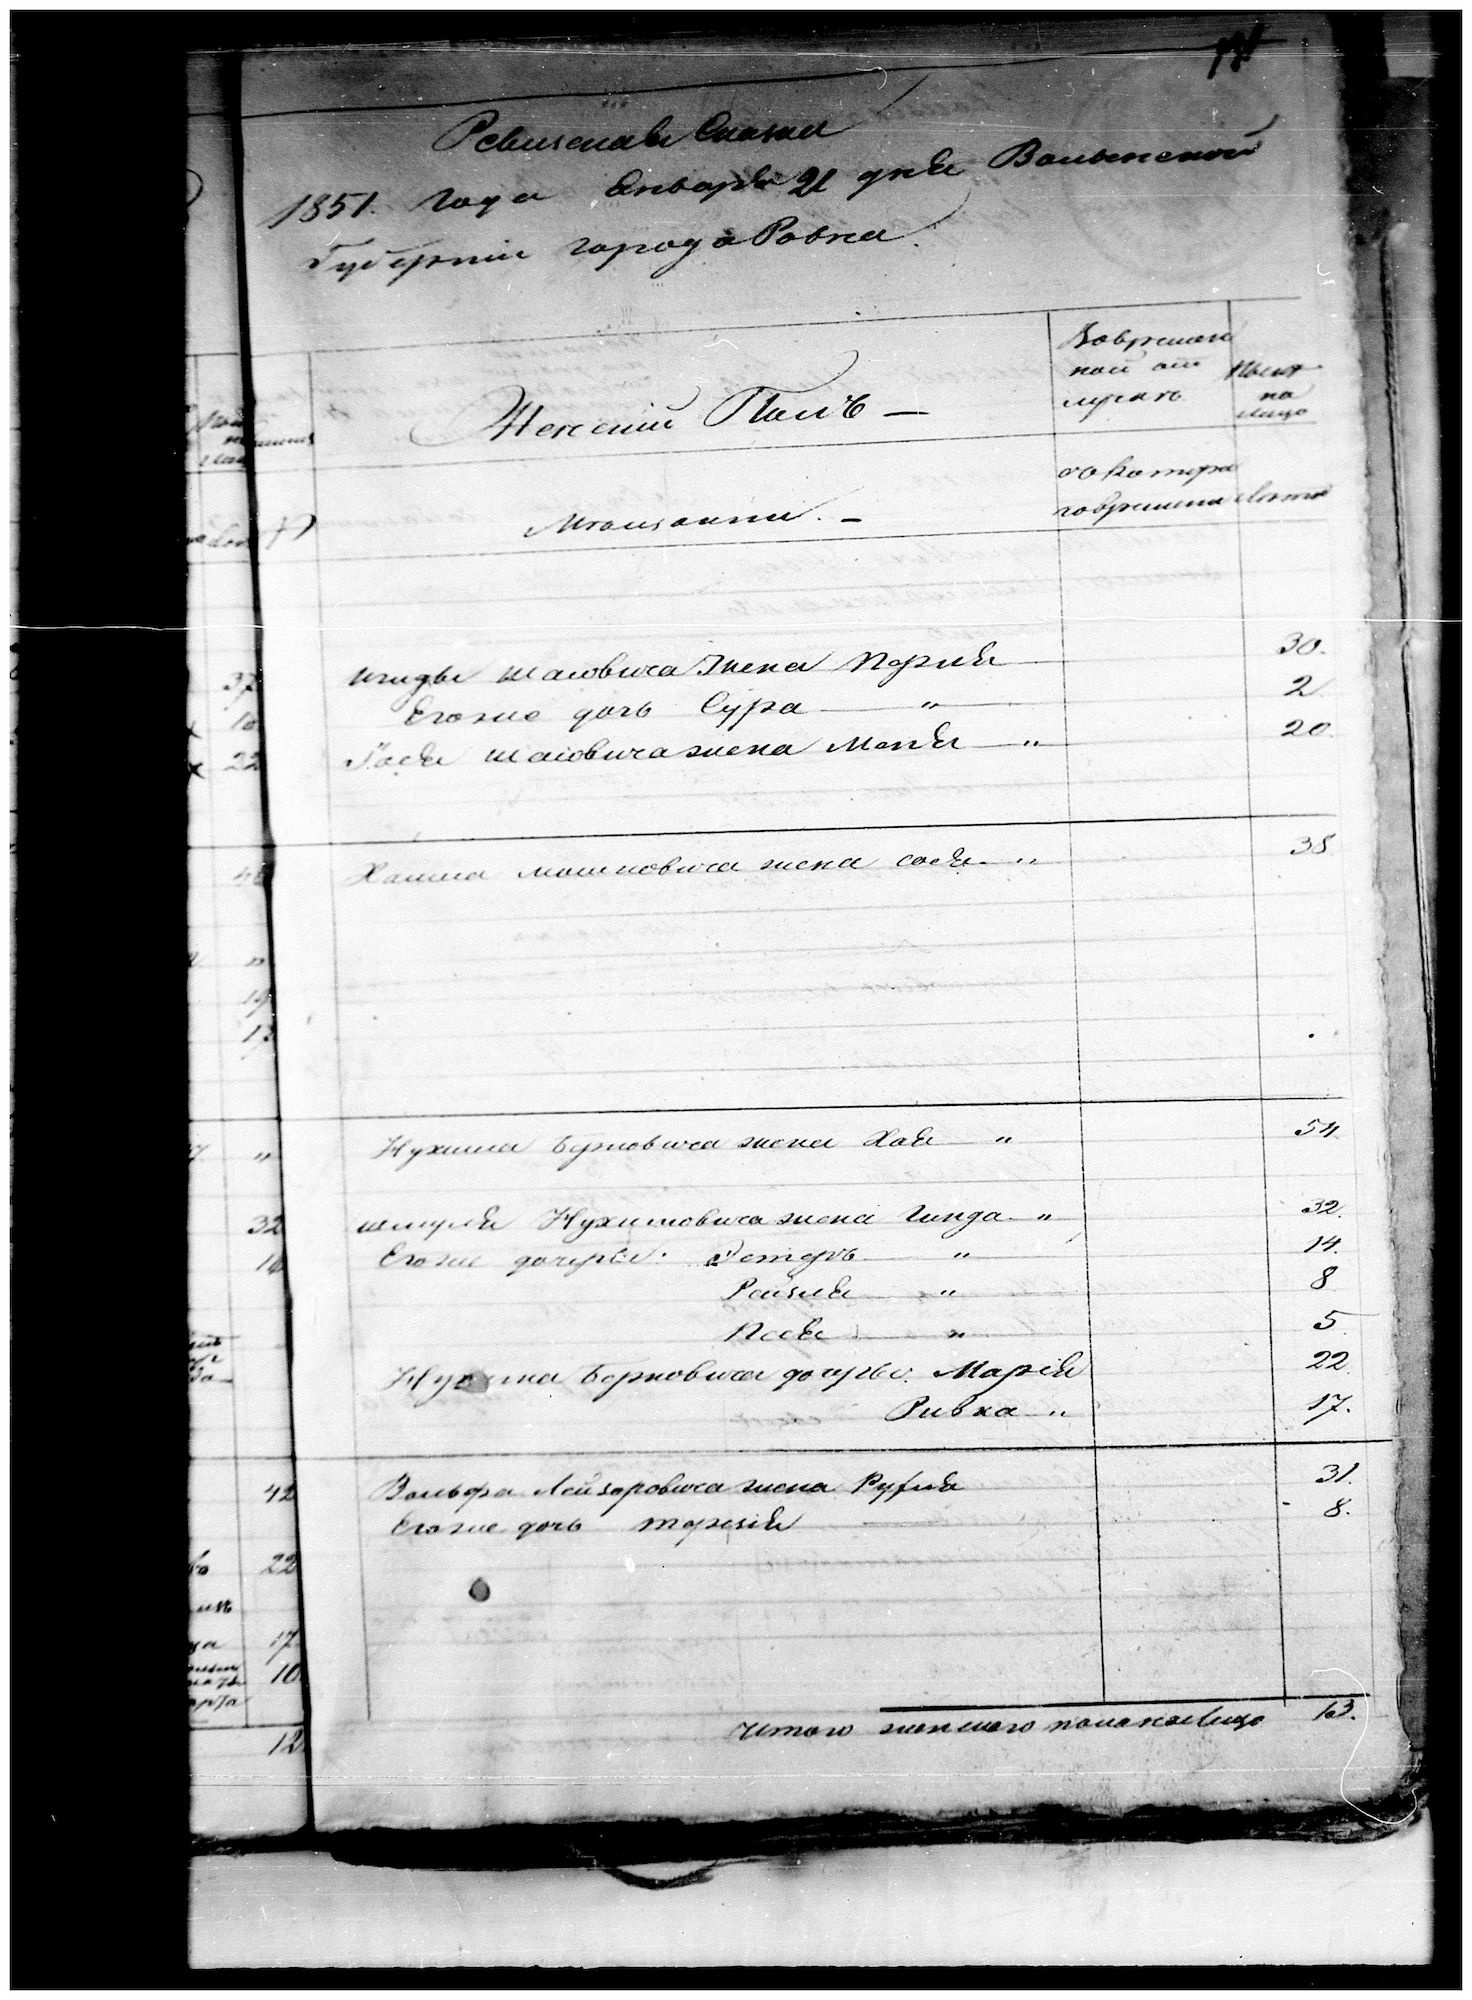 Ревизская Сказка
1851. Года Января 21 дня Волынской
Губерніи города Ровна.
Женскій Полъ —
Во времен
ной от
лучкѣ
Ныне
на
лицо
Мещани. —
съ котора
го времени
Лета
37
Шаювича Жена Перля
30.
10
Его же дочь Сура — "
2
22
Иося Шаювича жена Маня — "
20.
Хаима Мошковича жена Сося — "
35
"
19
13
"
Нухима Берковича жена Хая — "
54
32
Шмуля Нухимовича жена Гинда — "
32.
Его же дочери: Эстеръ "
14.
Рейзля "
8
Песя "
5
Нухима Берковича дочери: Марія
22
Ривка — "
17.
42
Вольфа Лейзоровича жена Рухля
31.
Его же дочь
8.
22
17
10
12.
Итого женского пола на Лицо 13.